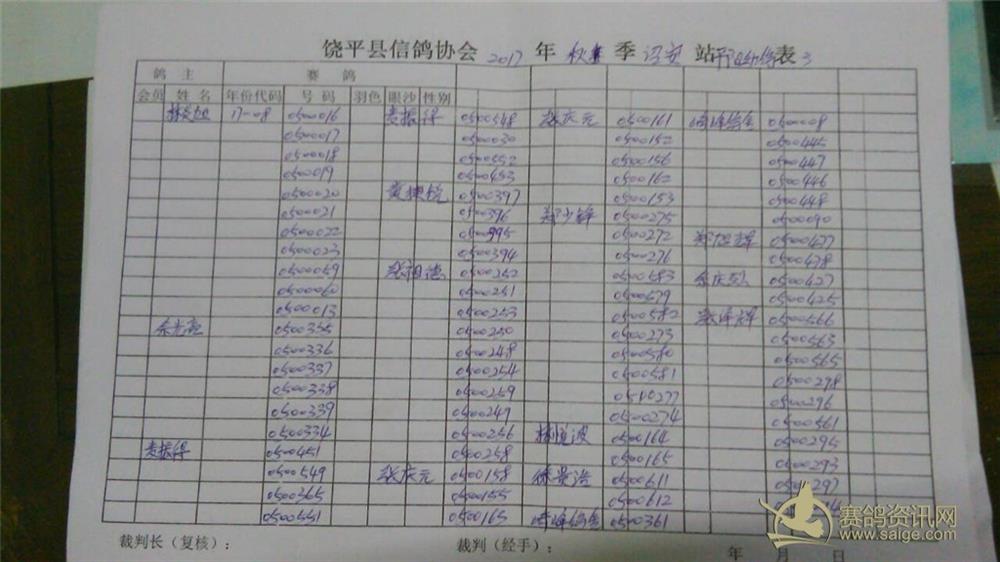 饶平县信鸽协会 2017 年 秋 季 诏安 站 表 3
鸽 主 赛 鸽
会员 姓 名 年份代码 号 码 羽色 眼沙 性别
17-08 0500016 麦振得 0500548 张庆元 0500161 0500008
0500017 0500030 0500152 0500445
0500018 0500552 0500156 0500447
0500019 0500453 0500162 0500446
0500020 0500397 0500153 0500448
0500021 0500396 郑少锋 0500275 0500090
0500022 0500395 0500272 0500477
0500023 0500394 0500276 0500478
0500059 张祖德 0500252 0500583 0500427
0500060 0500251 0500579 0500425
0500013 0500253 0500582 0500566
余光亮 0500335 0500250 0500273 0500563
0500336 0500248 0500580 0500565
0500337 0500254 0500581 0500298
0500338 0500259 0500277 0500296
0500339 0500249 0500274 0500561
0500334 0500256 0500164 0500295
麦振得 0500451 0500258 0500165 0500293
0500549 张庆元 0500158 0500611 0500297
0500365 0500155 0500612
0500551 0500165 0500361
裁判长（复核）： 裁判（经手）： 年 月 日
赛鸽资讯网
www.saige.com